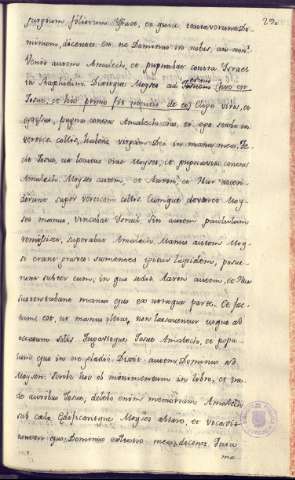 jurgium filiorum Israel, et quia tentaverunt Do-
minum, dicentes: Est ne Dominus in nobis, an non?
Venit autem Amalech, et pugnabat contra Israel
in Raphidim. Dixitque Moyses ad Josue
Elige viros, et
egressus, pugna contra Amalech: cras, et ego stabo in
vertice collis, habens virgam Dei in manu mea. Fe-
cit Josue, ut locutus erat Moyses, et pugnavit contra
Amalech. Moyses autem, et Aaron, et Hur ascen-
derunt super verticem collis. Cumque levaret Moy-
ses manus, vincebat Israel: sin autem paululum
remisisset, superabat Amalech. Manus autem Moy-
si erant graves: sumentes igitur lapidem, posue-
runt subter eum, in quo sedit. Aaron autem, et Hur
sustentabant manus ejus ex utraque parte. Et fac-
tum est, ut manus illius, non lassarentur usque ad
occasum solis. Fugavitque Josue Amalech, et popu-
lum ejus in ore gladii. Dixit autem Dominus ad
Moysen: Scribe hoc ob monumentum in libro, et tra-
de auribus Josue, delebo enim memoriam Amalech
sub caelo. Edificavitque Moyses altare, et vocavit
nomen ejus, Dominus exaltatio mea, dicens: Quia
ma